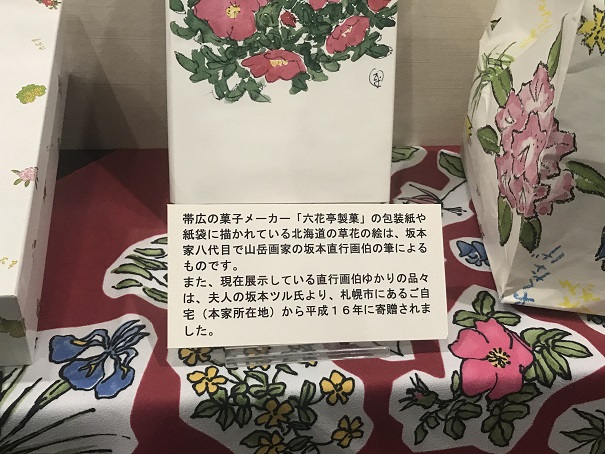 帯広の菓子メーカー「六花亭製菓」の包装紙や
紙袋に描かれている北海道の草花の絵は、坂本
家八代目で山岳画家の坂本直行画伯の筆による
ものです。
また、現在展示している直行画伯ゆかりの品々
は、夫人の坂本ツル氏より、札幌市にあるご自
宅（本家所在地）から平成１６年に寄贈されま
した。